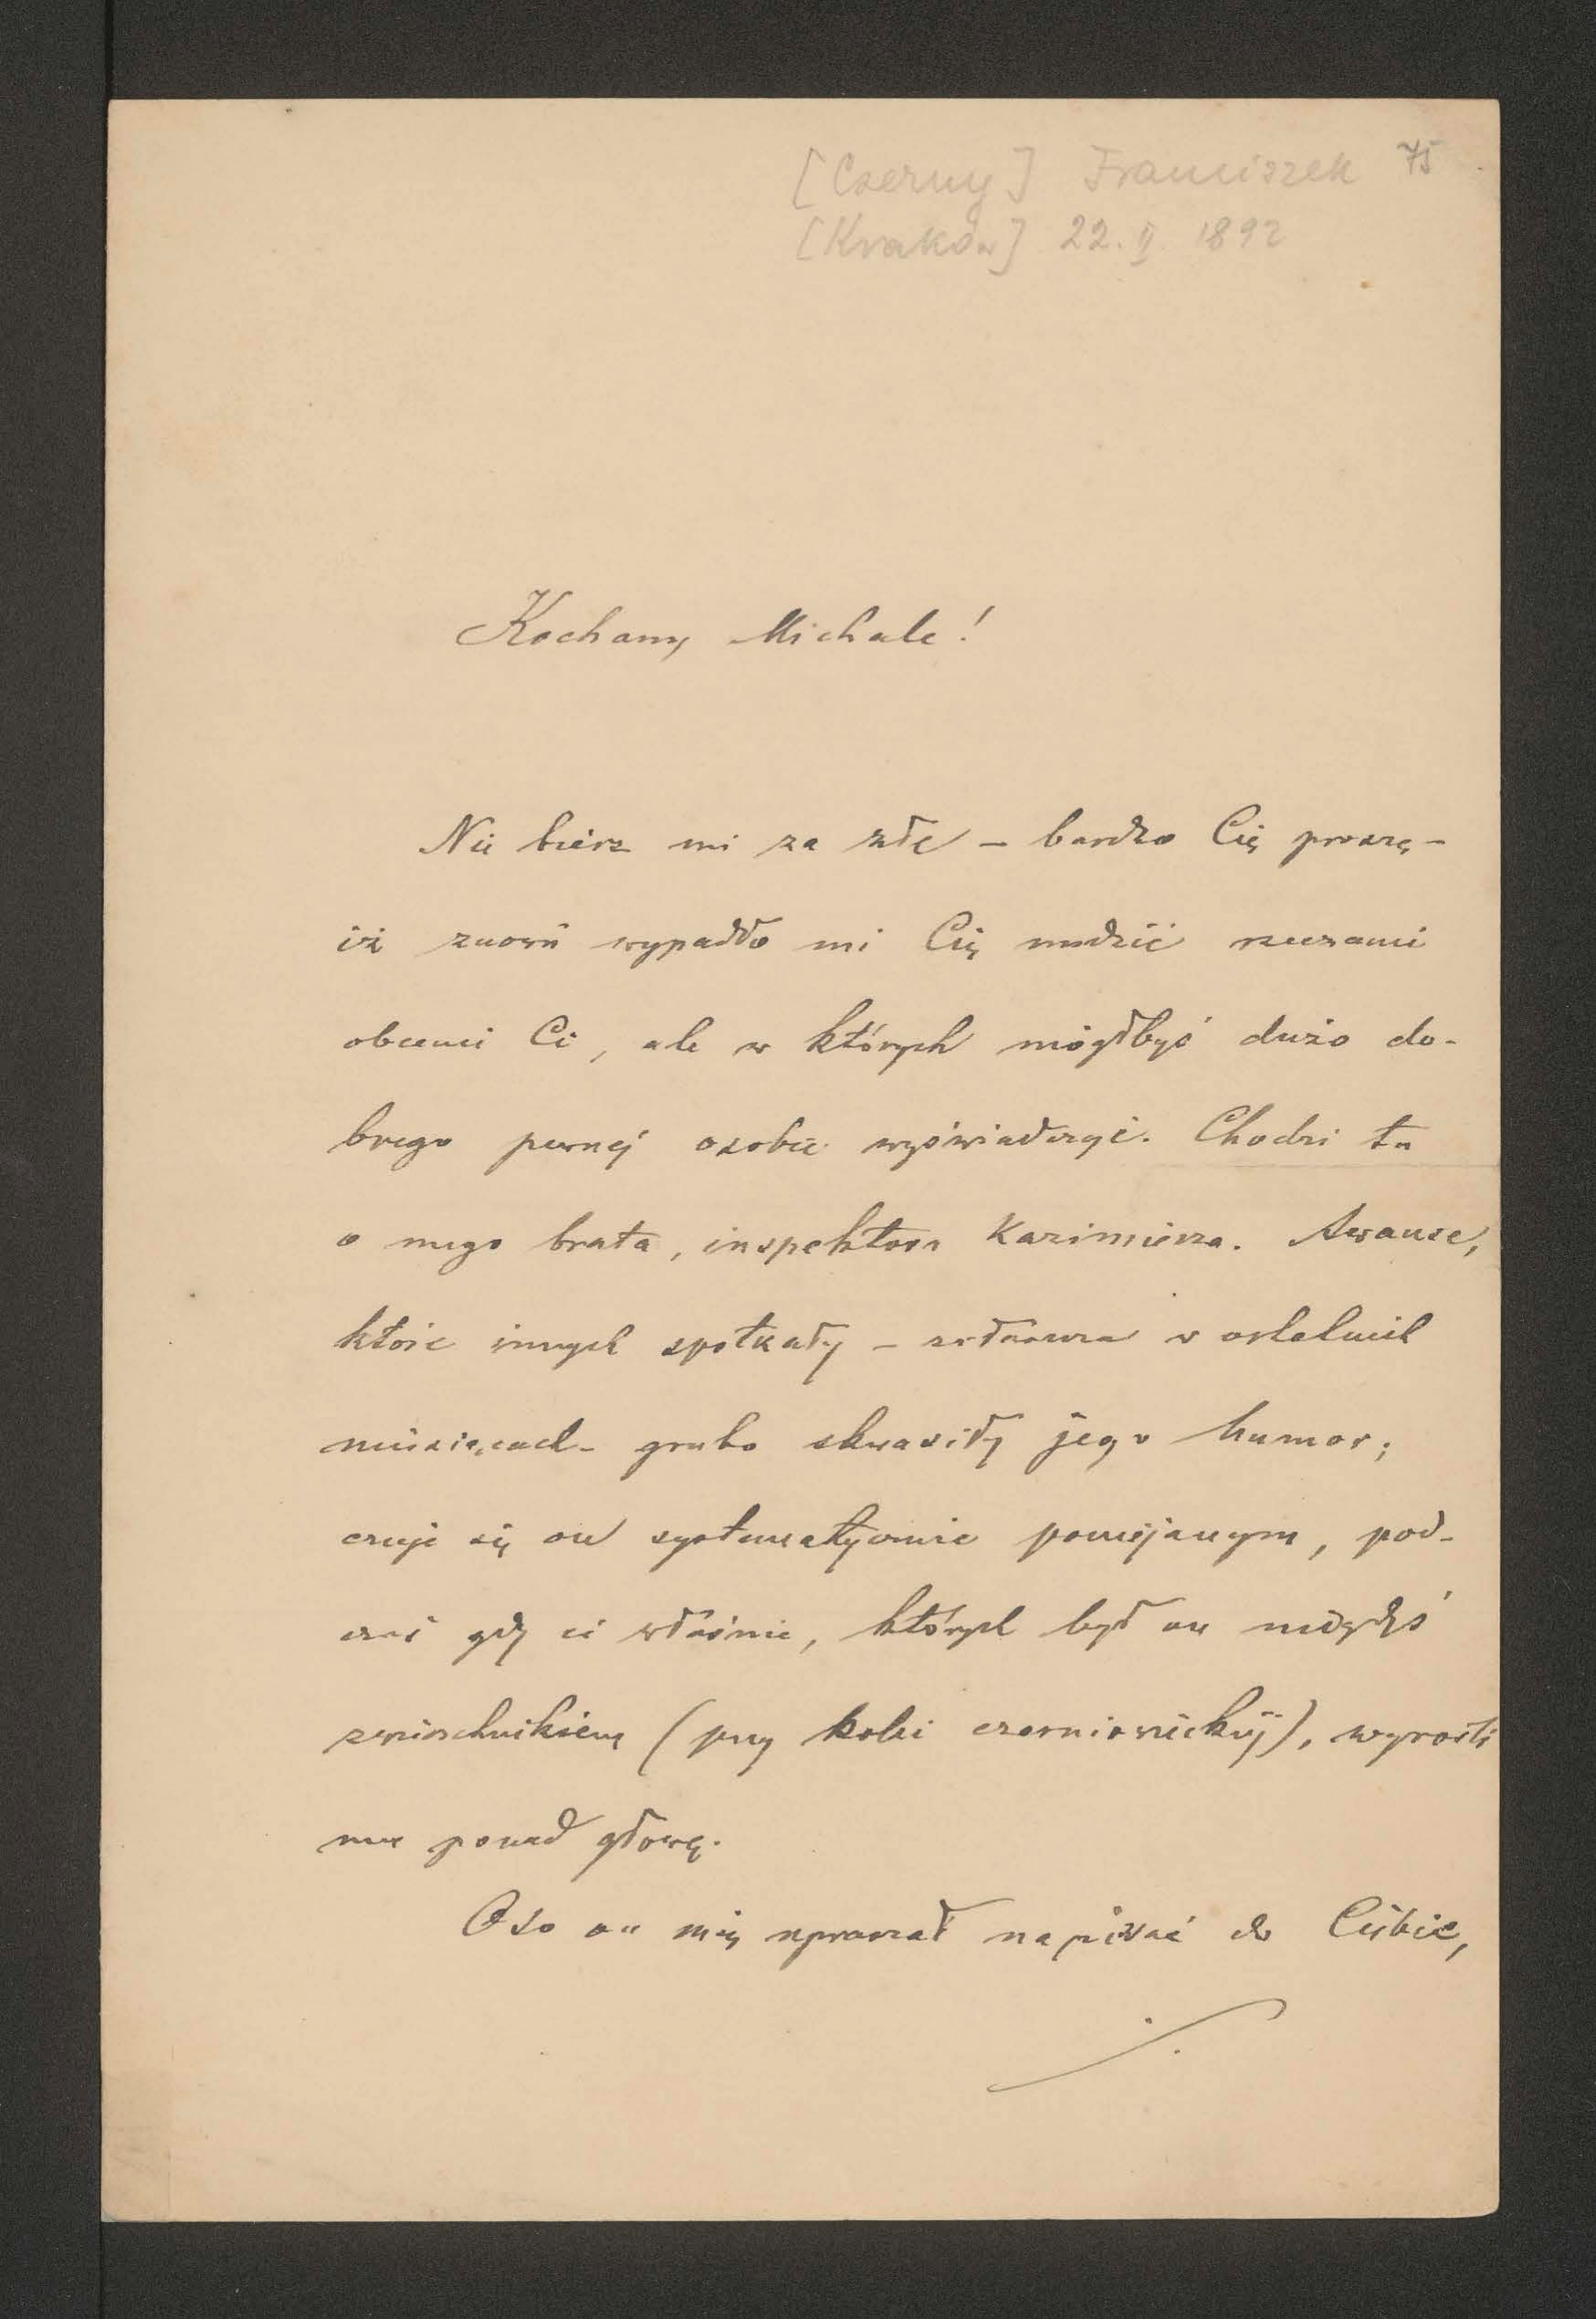 [Czerny] Franciszek 75
[Kraków] 22. II. 1892
Kochany Michale!
Nie bierz mi za złe – bardzo Cię proszę –
iż znowu wypadło mi Cię nudzić rzeczami
obcemi Ci, ale w których mógłbyś dużo do-
brego pewnej osobie wyświadczyć. Chodzi tu
o mego brata, inspektora Kazimierza. Awanse,
które innych spotkały – zwłaszcza w ostatnich
miesiącach – grubo skwasiły jego humor;
czuje się on systematycznie pomijanym, pod-
czas gdy ci właśnie, których był on niegdyś
zwierzchnikiem (przy kolei czerniowieckiej), wyrośli
mu ponad głowę.
Oto on mię upraszał napisać do Ciebie,